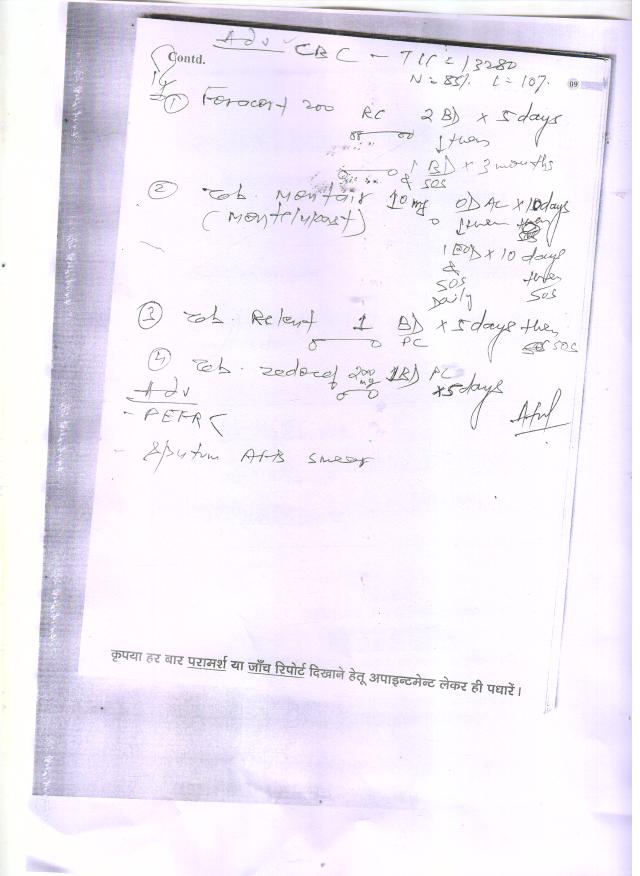 Adv CBC - TLC = 13280
Contd.
N = 85% L = 10%
09
① Foracort 200 RC 2 BD × 5 days
↓ then
1 BD × 3 months
& SOS
② Tab. Montair 10 mg OD AC × 10 days
(Montelukast) ↓ then
1 EOD × 10 days
& then
SOS SOS
Daily
③ Tab. Relent 1 BD × 5 days then
PC SOS
④ Tab. Zedocef 200 mg 1 BD PC
× 5 days
Adv
- PEFR
- Sputum AFB smear
कृपया हर बार परामर्श या जाँच रिपोर्ट दिखाने हेतू अपाइन्टमेन्ट लेकर ही पधारें।